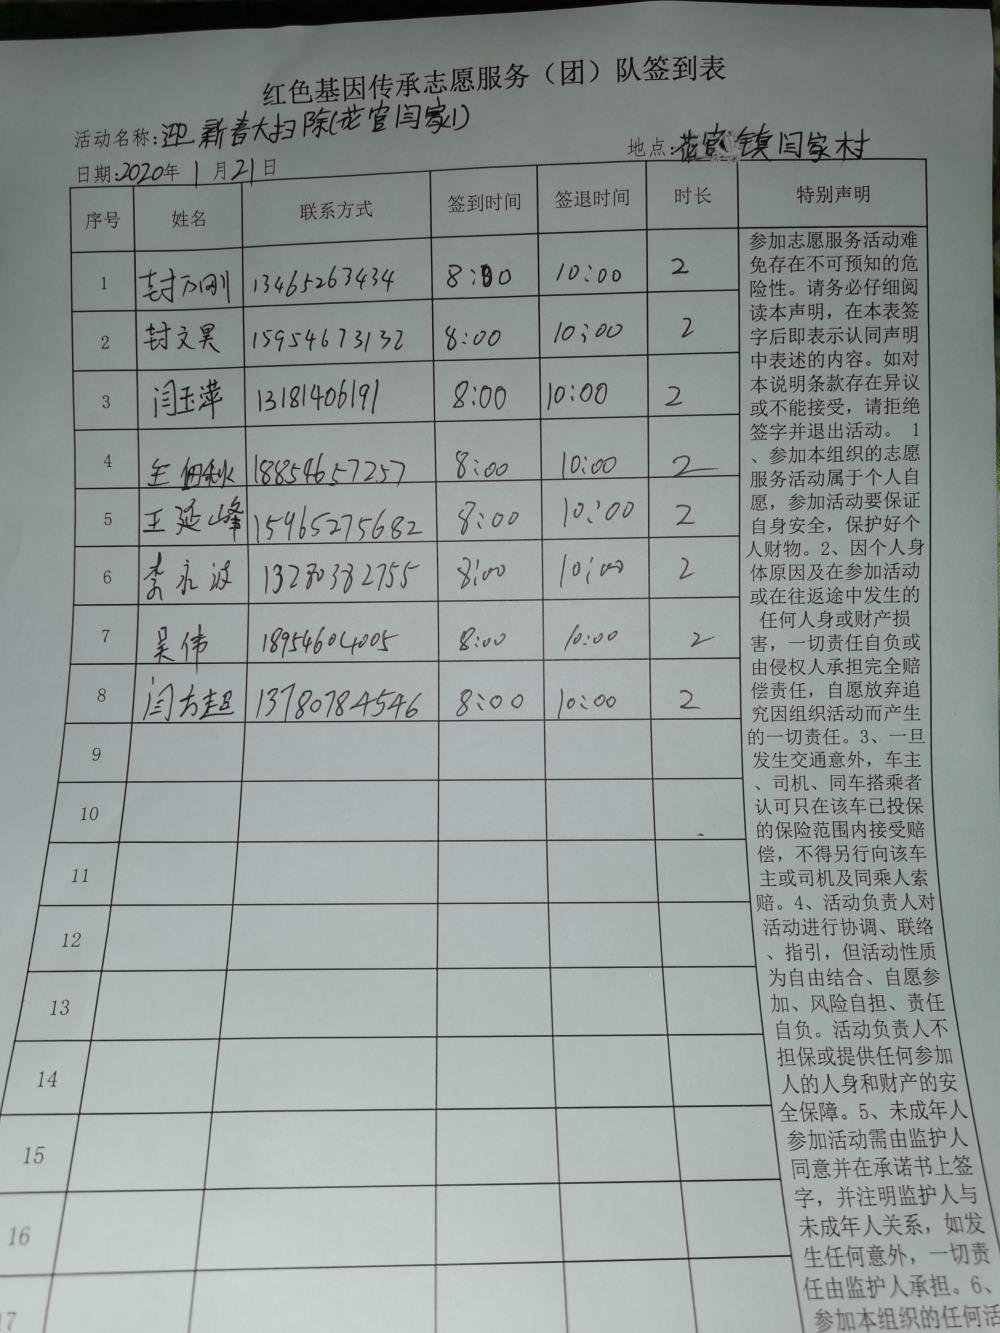 红色基因传承志愿服务（团）队签到表
活动名称:迎新春大扫除(花官闫家1)
地点:花官镇闫家村
日期:2020年1月21日
序号 姓名 联系方式 签到时间 签退时间 时长 特别声明
1 封万刚 13465263434 8:00 10:00 2
2 封文昊 15954673132 8:00 10:00 2
3 闫玉萍 13181406191 8:00 10:00 2
4 秋 18854657257 8:00 10:00 2
5 王延峰 15965275682 8:00 10:00 2
6 李永波 13280382755 8:00 10:00 2
7 吴伟 18954604005 8:00 10:00 2
8 闫方超 13780784546 8:00 10:00 2
9
10
11
12
13
14
15
16
17
参加志愿服务活动难
免存在不可预知的危
险性。请务必仔细阅
读本声明，在本表签
字后即表示认同声明
中表述的内容。如对
本说明条款存在异议
或不能接受，请拒绝
签字并退出活动。 1
、参加本组织的志愿
服务活动属于个人自
愿，参加活动要保证
自身安全，保护好个
人财物。2、因个人身
体原因及在参加活动
或在往返途中发生的
任何人身或财产损
害，一切责任自负或
由侵权人承担完全赔
偿责任，自愿放弃追
究因组织活动而产生
的一切责任。3、一旦
发生交通意外，车主
、司机、同车搭乘者
认可只在该车已投保
的保险范围内接受赔
偿，不得另行向该车
主或司机及同乘人索
赔。4、活动负责人对
活动进行协调、联络
、指引，但活动性质
为自由结合、自愿参
加、风险自担、责任
自负。活动负责人不
担保或提供任何参加
人的人身和财产的安
全保障。5、未成年人
参加活动需由监护人
同意并在承诺书上签
字，并注明监护人与
未成年人关系，如发
生任何意外，一切责
任由监护人承担。6、
参加本组织的任何活